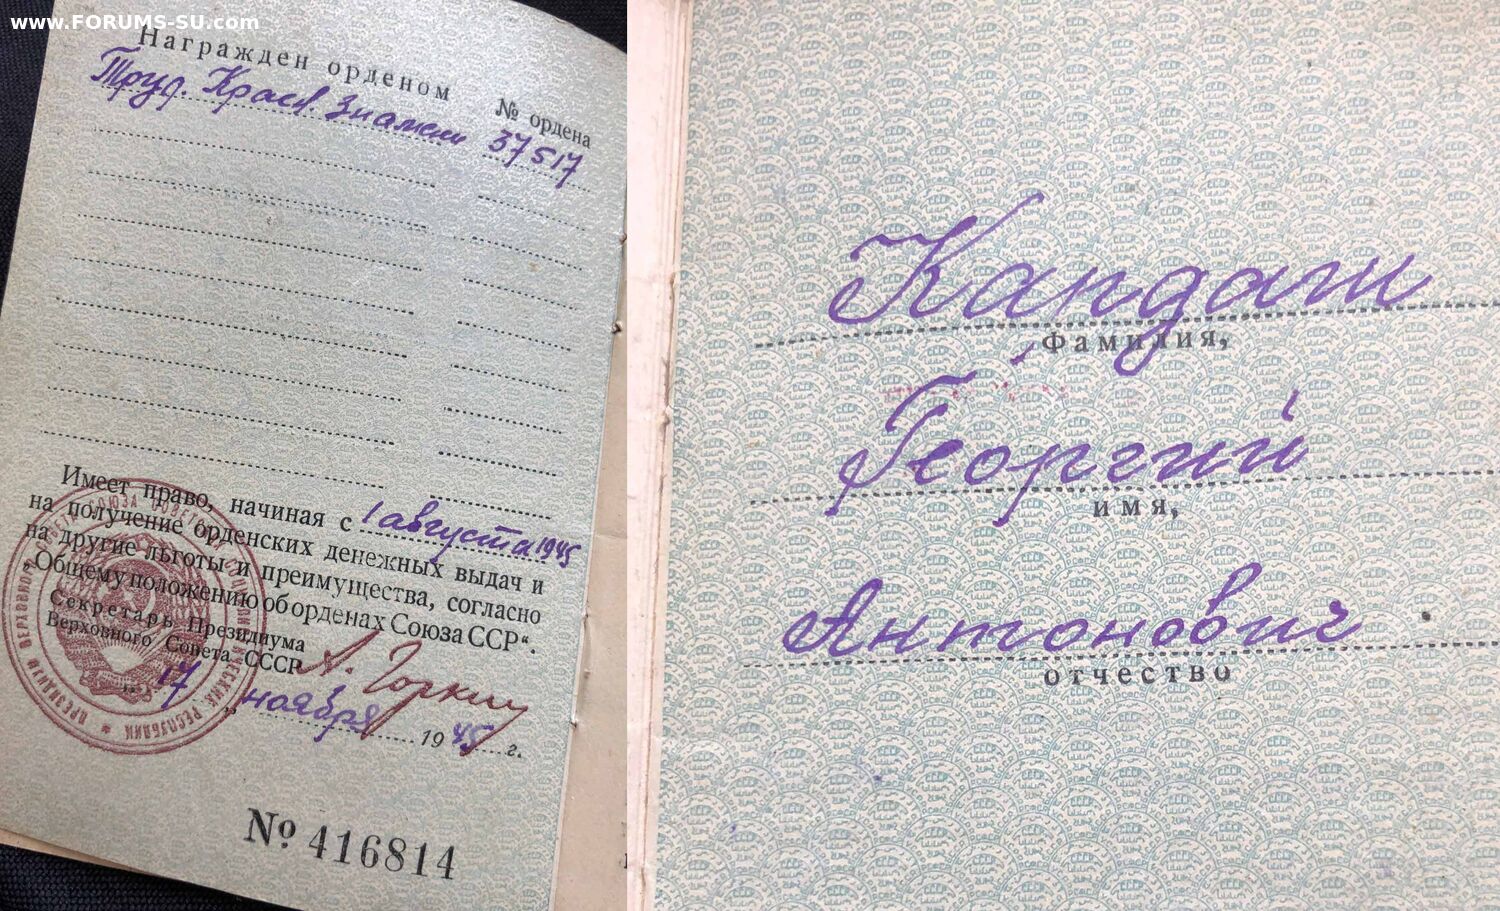 www.FORUMS-SU.com
Награжден орденом № ордена
Труд. Красн Знамени 37517
Имеет право, начиная с 1 августа 1945
на получение орденских денежных выдач и
на другие льготы и преимущества, согласно
„Общему положению об орденах Союза ССР“.
Секретарь Президиума
Верховного Совета СССР А. Горкин
„ 17 „ ноября 1945 г.
№ 416814
Кандаш
фамилия,
Георгий
имя,
Антонович
отчество